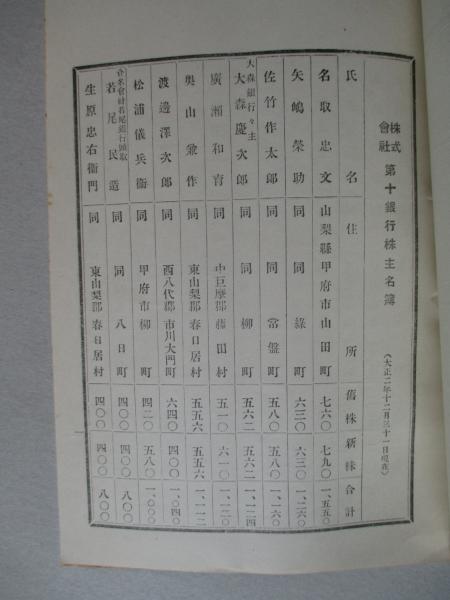 株式會社 第十銀行株主名簿 (大正二年十二月三十一日現在)
氏名 住所 舊株 新株 合計
名取忠文 山梨縣甲府市山田町 七六〇 七九〇 一、五五〇
矢嶋榮助 同 同 綠町 六三〇 六三〇 一、二六〇
佐竹作太郎 同 同 常盤町 五八〇 五八〇 一、一六〇
大森銀行々主 大森慶次郎 同 同 柳町 五六二 五六二 一、一二四
廣瀬和育 同 中巨摩郡 藤田村 五一〇 六一〇 一、一二〇
奥山兼作 同 東山梨郡 春日居村 五五六 五五六 一、一一二
渡邊澤次郎 同 西八代郡 市川大門町 六四〇 四〇〇 一、〇四〇
松浦儀兵衞 同 甲府市柳町 四二〇 五八〇 一、〇〇〇
合名會社若尾銀行頭取 若尾民造 同 同 八日町 四〇〇 四〇〇 八〇〇
生原忠右衞門 同 東山梨郡 春日居村 四〇〇 四〇〇 八〇〇